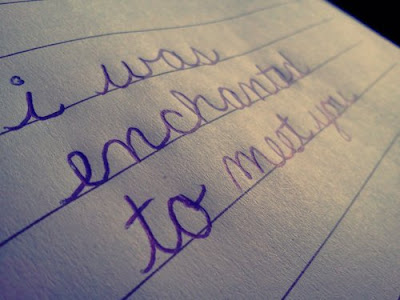 i was
enchanted
to meet you